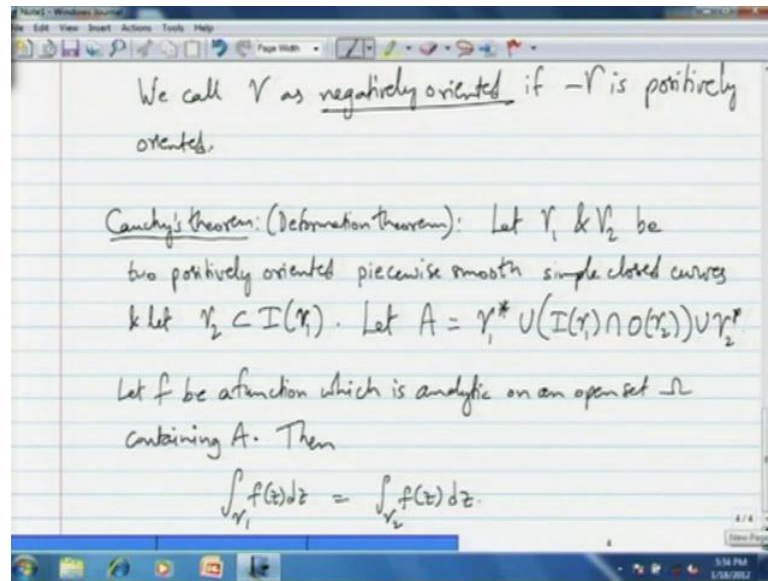 Note1 - Windows Journal
File Edit View Insert Actions Tools Help
Page Width
We call γ as negatively oriented if -γ is positively
oriented.
Cauchy's theorem: (Deformation theorem): Let γ₁ & γ₂ be
two positively oriented piecewise smooth simple closed curves
& let γ₂ ⊂ I(γ₁). Let A = γ₁* ∪ (I(γ₁) ∩ O(γ₂)) ∪ γ₂*
Let f be a function which is analytic on an open set Ω
containing A. Then
∫_γ₁ f(z)dz = ∫_γ₂ f(z)dz.
4/4
New Page
5:34 PM
1/18/2012